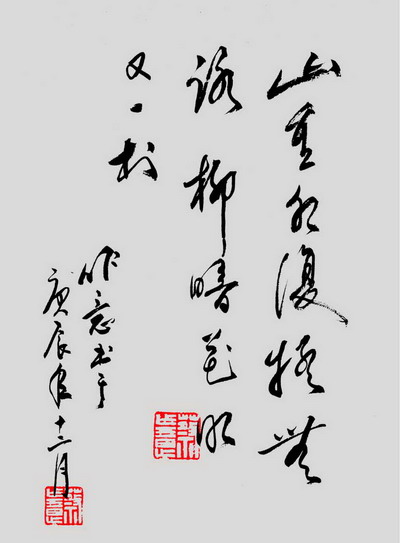 山重水復疑無
路柳暗花明
又一村
意书于
庚辰年十二月